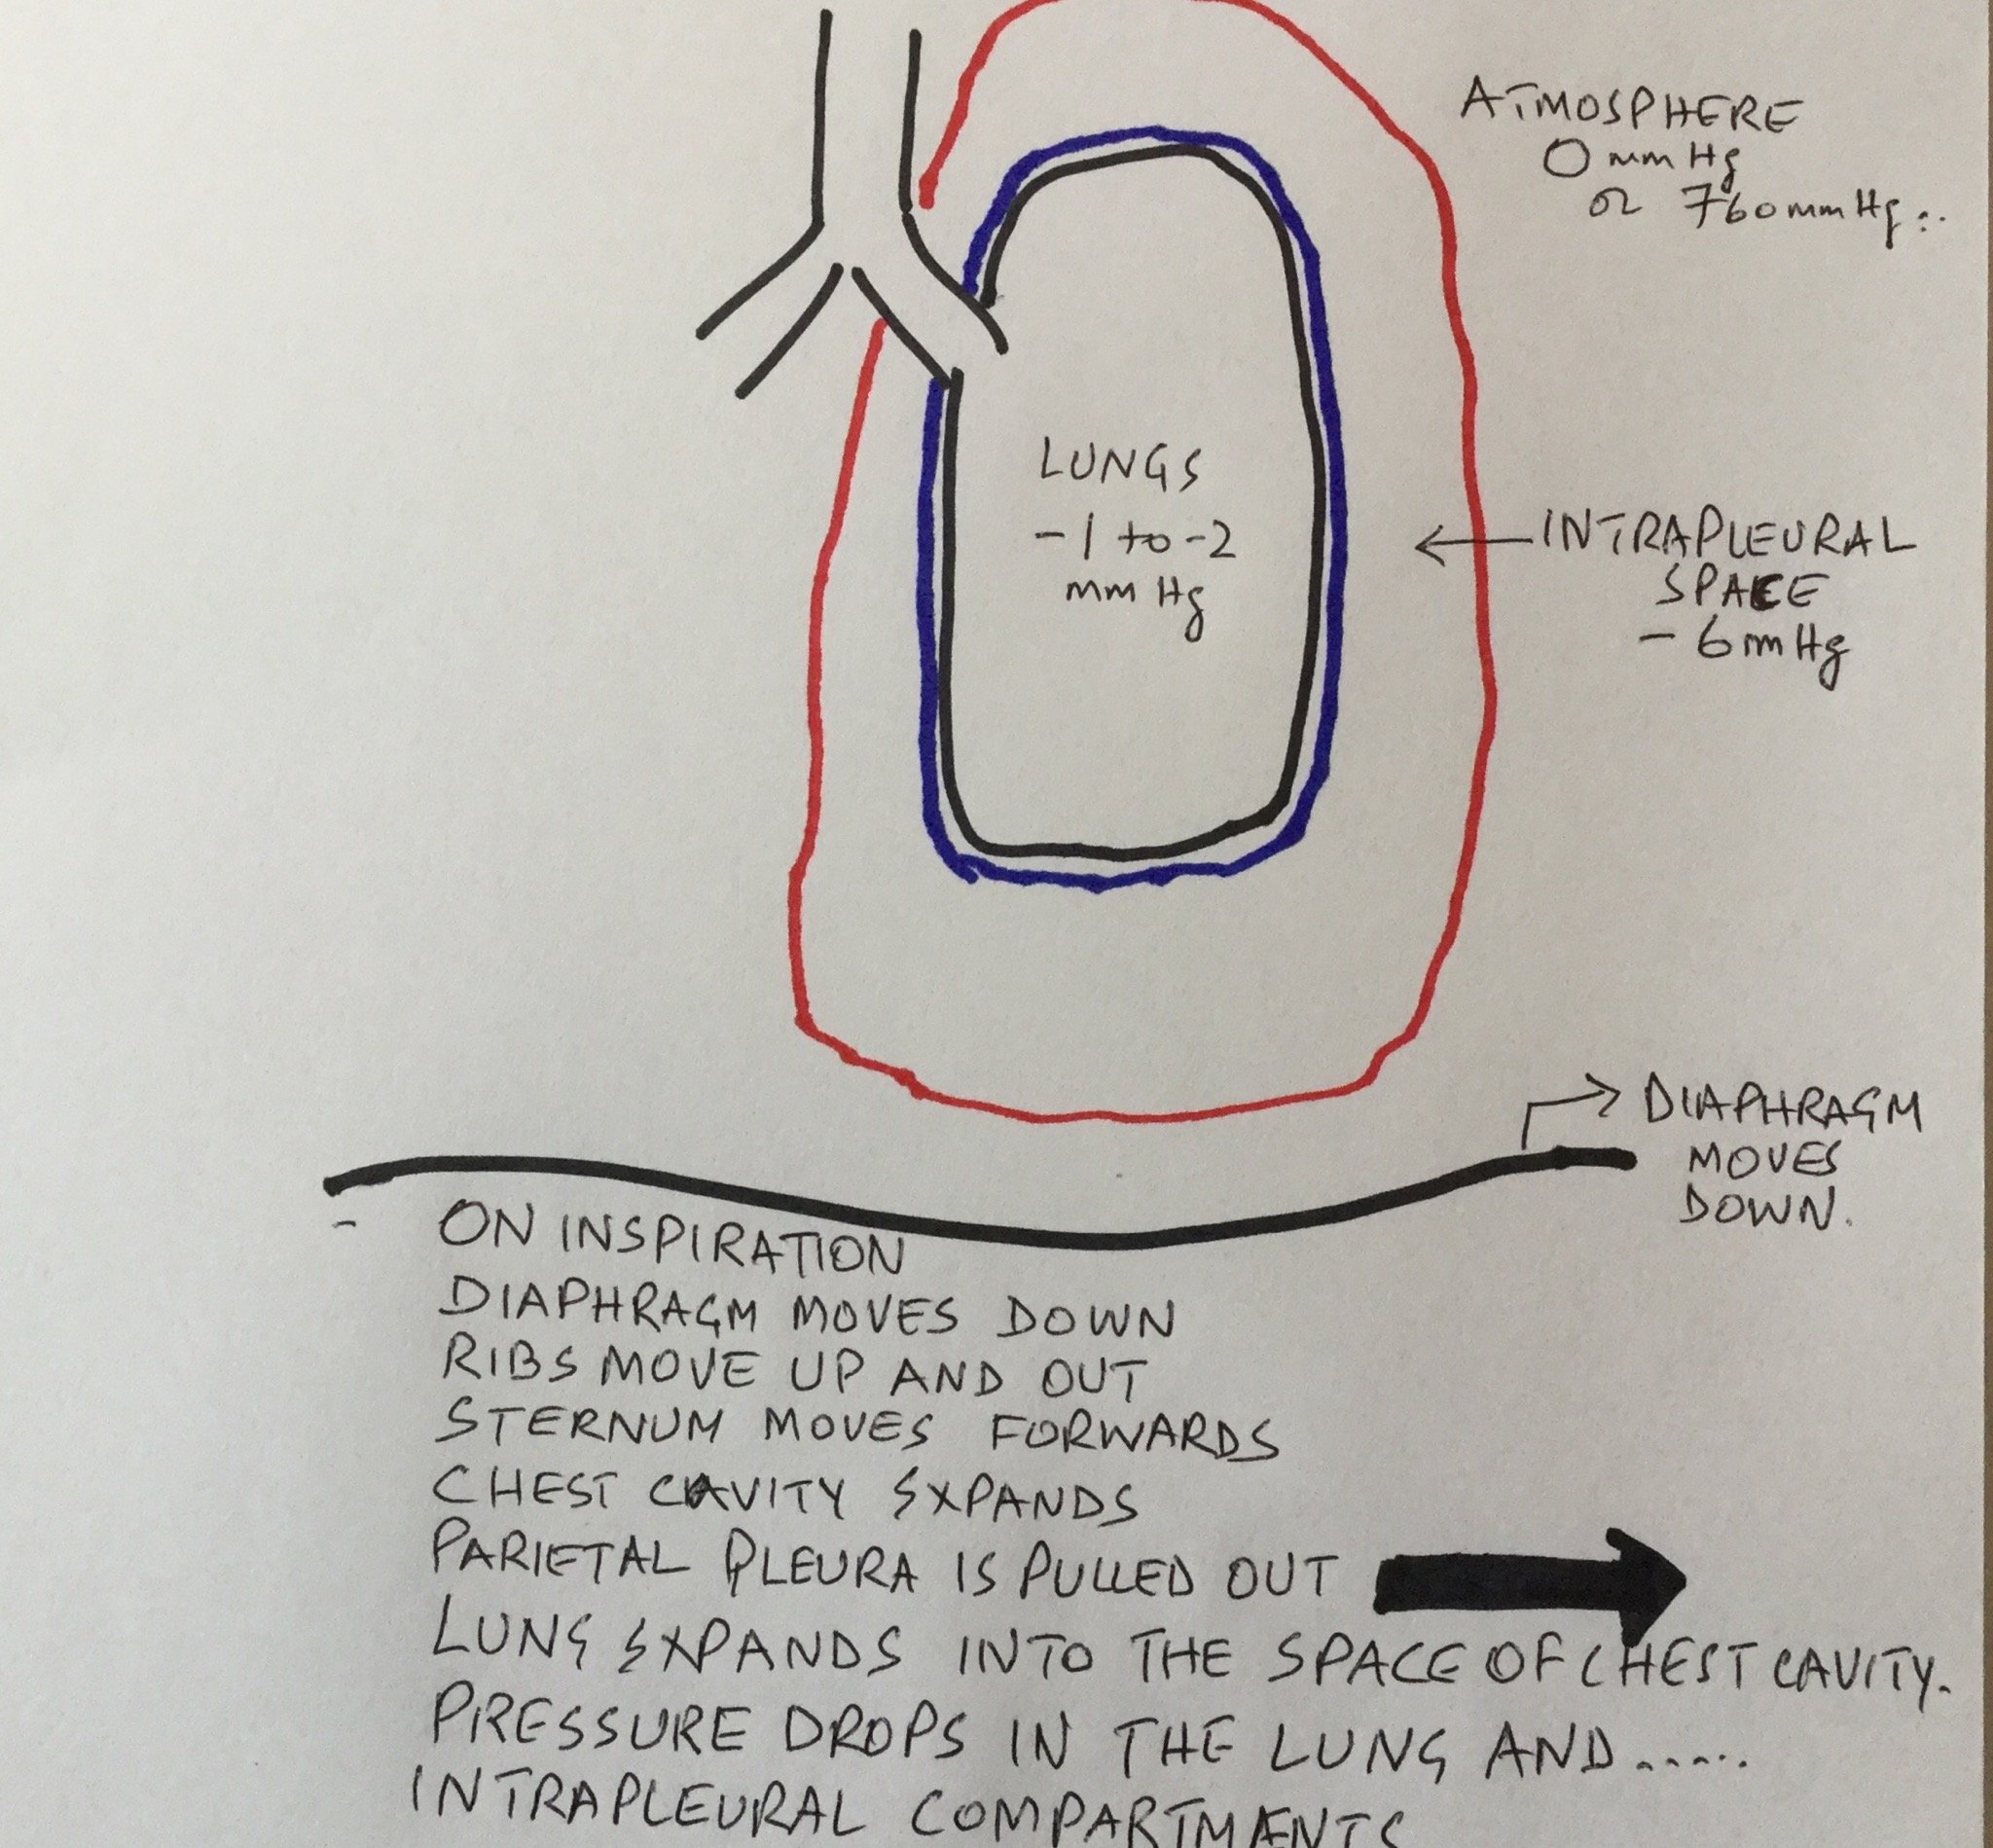 ATMOSPHERE
0 mmHg
or 760mmHg..
LUNGS
-1 to -2
mm Hg
INTRAPLEURAL
SPACE
- 6mmHg
DIAPHRAGM
MOVES
DOWN.
- ON INSPIRATION
DIAPHRAGM MOVES DOWN
RIBS MOVE UP AND OUT
STERNUM MOVES FORWARDS
CHEST CAVITY EXPANDS
PARIETAL PLEURA IS PULLED OUT
LUNG EXPANDS INTO THE SPACE OF CHEST CAVITY.
PRESSURE DROPS IN THE LUNG AND.....
INTRAPLEURAL COMPARTMENTS